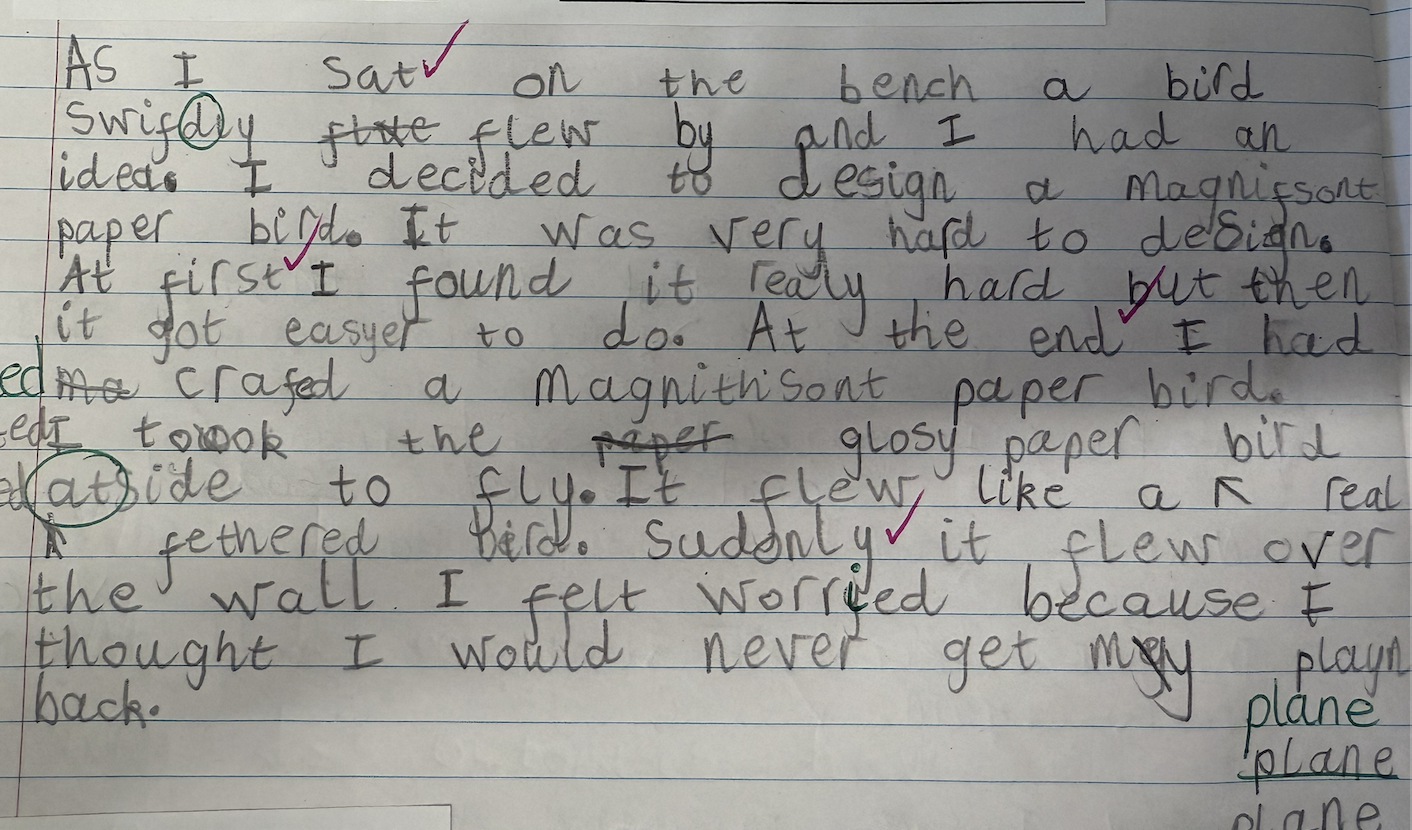 As I sat on the bench a bird
swifdly flue flew by and I had an
idea. I decided to design a magnifsont
paper bird. It was very hard to design.
At first I found it realy hard but then
it got easyer to do. At the end I had
ed ma crafed a magnithsont paper bird.
ed I took the paper glosy paper bird
ed atside to fly. It flew like a real
fethered bird. Suddnly it flew over
the wall. I felt worried because I
thought I would never get my playn
back.
plane
plane
plane